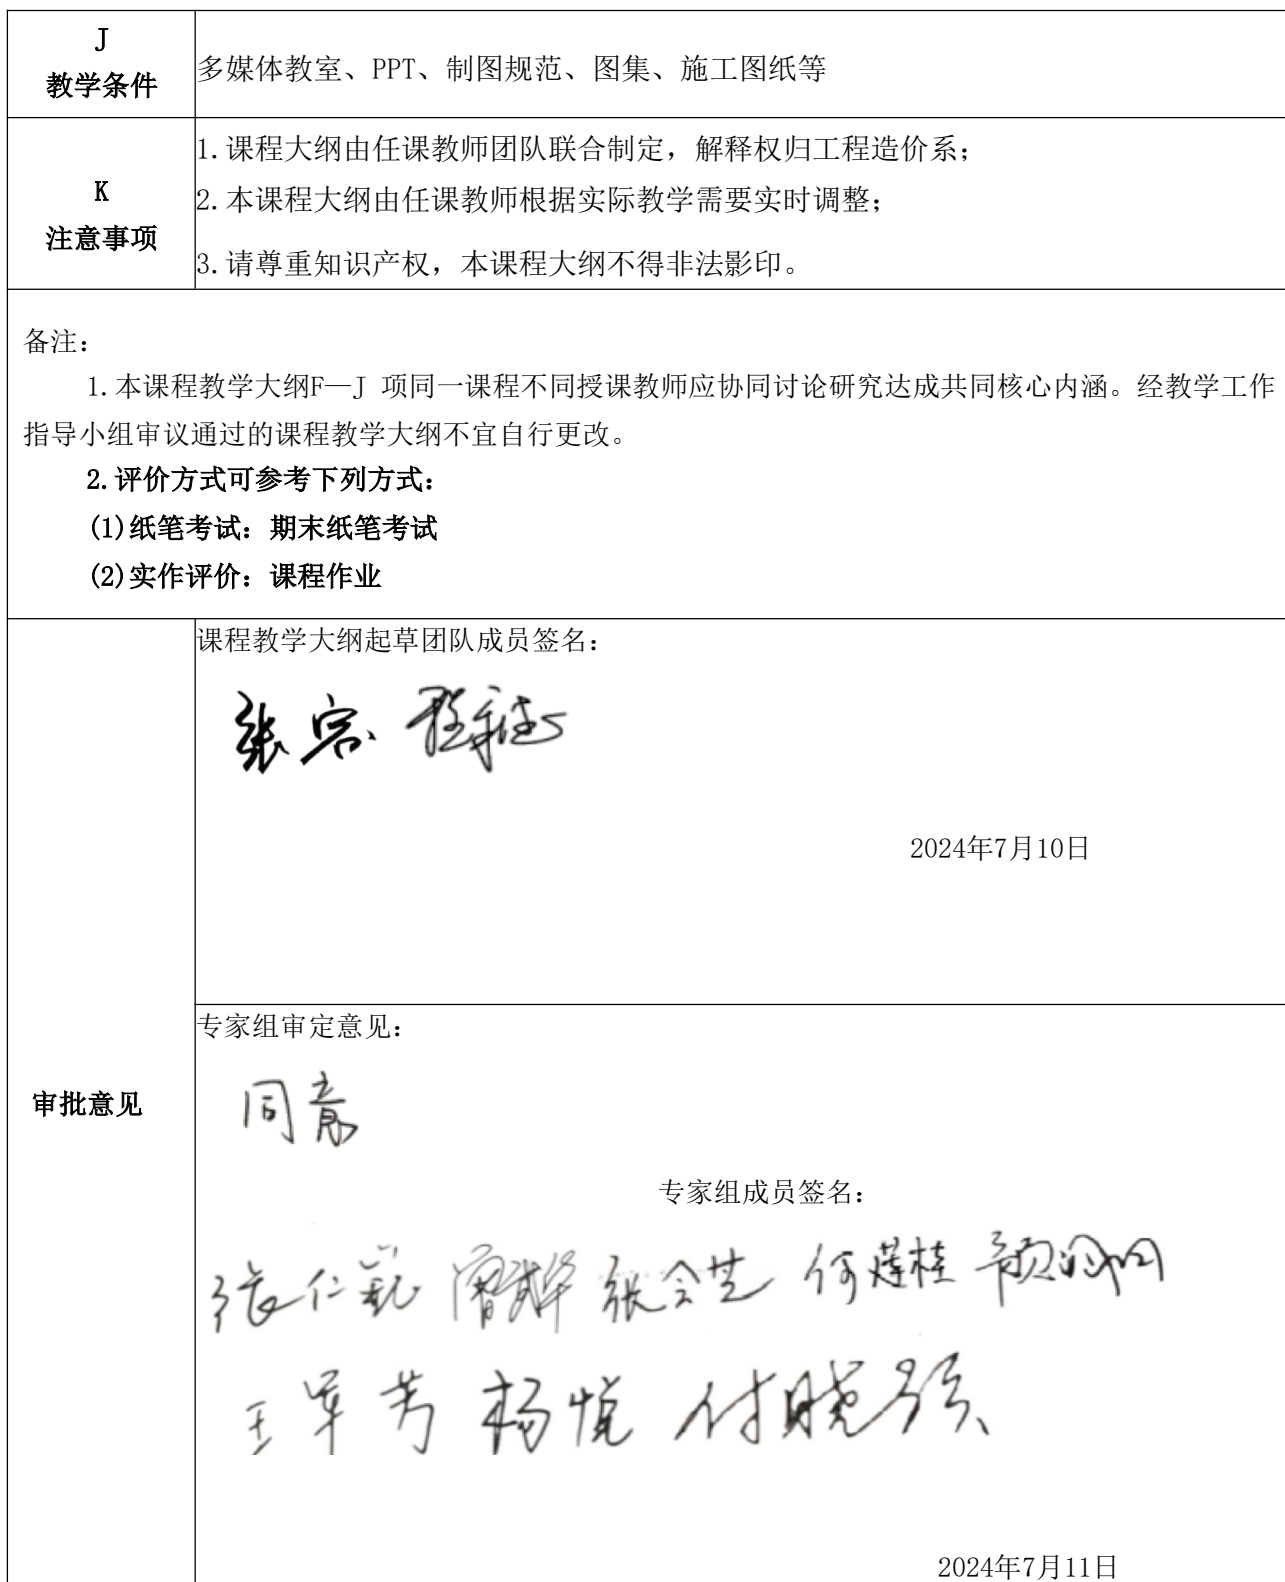 J
教学条件
多媒体教室、PPT、制图规范、图集、施工图纸等
K
注意事项
1.课程大纲由任课教师团队联合制定，解释权归工程造价系；
2.本课程大纲由任课教师根据实际教学需要实时调整；
3.请尊重知识产权，本课程大纲不得非法影印。
备注：
1.本课程教学大纲F—J 项同一课程不同授课教师应协同讨论研究达成共同核心内涵。经教学工作
指导小组审议通过的课程教学大纲不宜自行更改。
2.评价方式可参考下列方式：
(1)纸笔考试：期末纸笔考试
(2)实作评价：课程作业
审批意见
课程教学大纲起草团队成员签名：
张
2024年7月10日
专家组审定意见：
同意
专家组成员签名：
张仁 张会芝 何莲桂
王军芳 杨悦 付晓
2024年7月11日